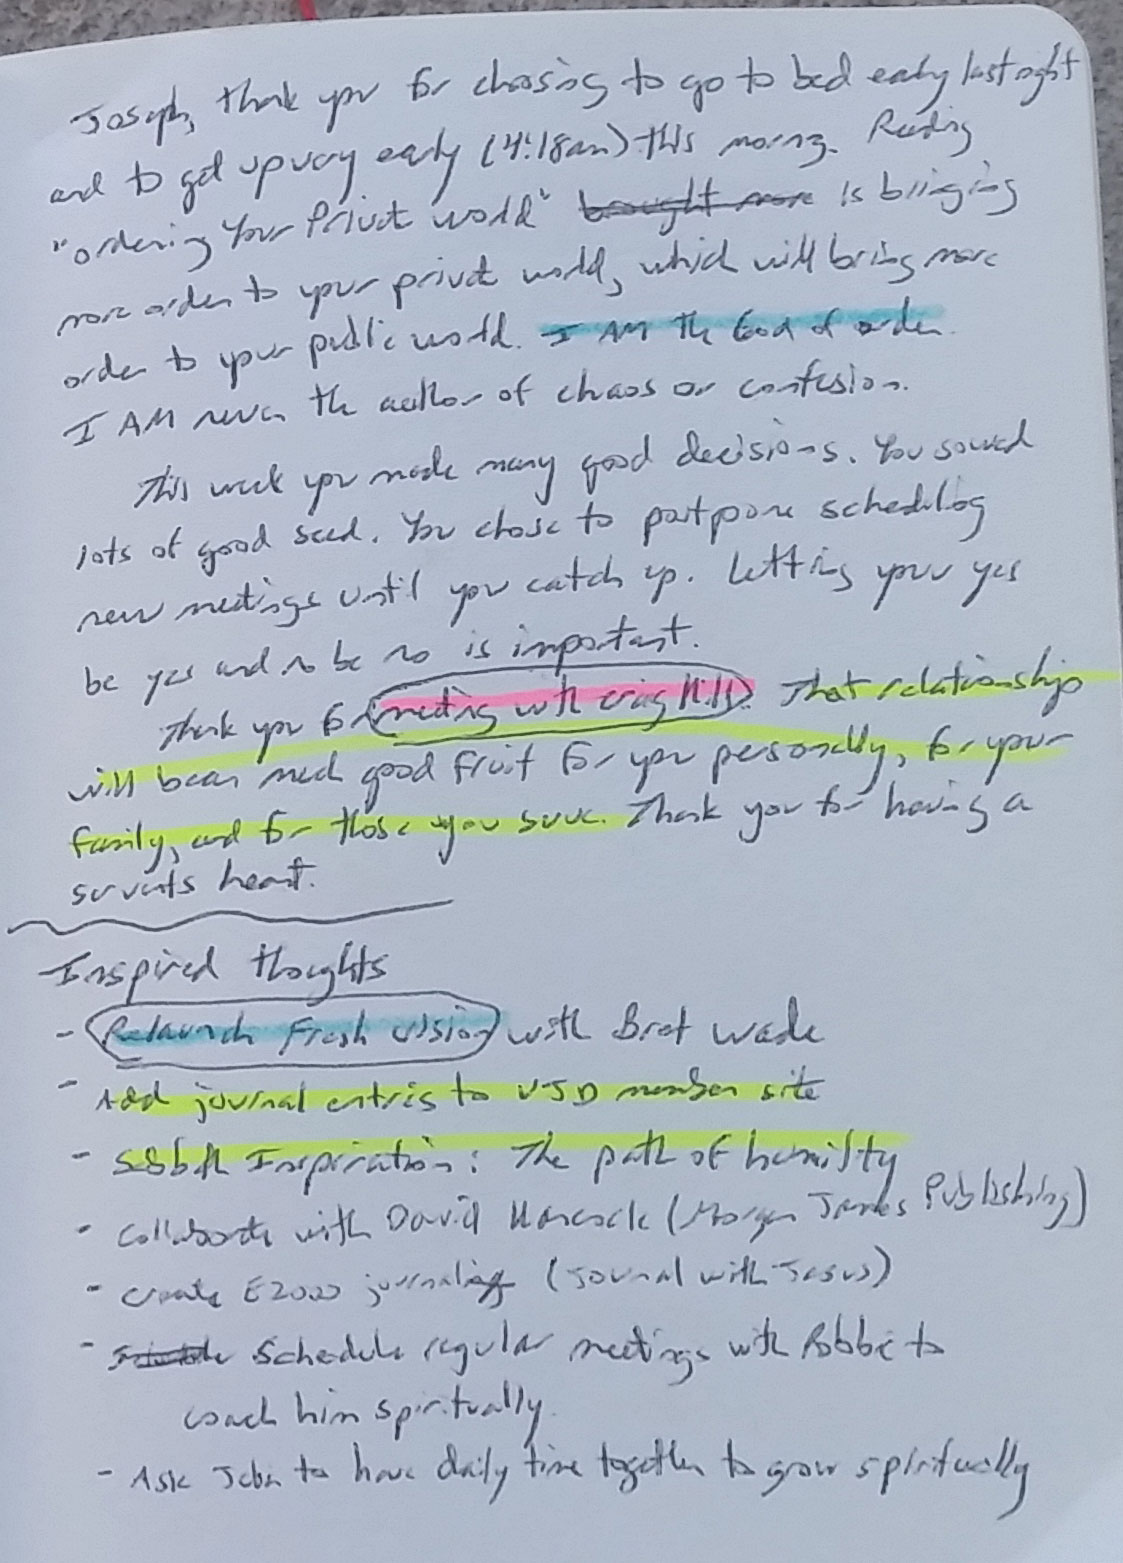 Joseph, thank you for choosing to go to bed early last night
and to get up very early (4:18am) this morning. Reading
"ordering Your Private world" brought more is bringing
more order to your private world, which will bring more
order to your public world. I AM the God of order.
I AM never the author of chaos or confusion.
This week you made many good decisions. You sowed
lots of good seed. You chose to postpone scheduling
new meetings until you catch up. Letting your yes
be yes and no be no is important.
Thank you for meeting with Craig Hill. That relationship
will bear much good fruit for you personally, for your
family, and for those you serve. Thank you for having a
servants heart.
Inspired thoughts
- Relaunch Fresh vision with Bret Wade
- Add journal entries to VJD member site
- Sabbath Inspiration: The path of humility
- Collaborate with David Hancock (Morgan James Publishing)
- Create E2020 journaling (Journal with Jesus)
- Schedule regular meetings with Robbie to
coach him spiritually.
- Ask to have daily time together to grow spiritually